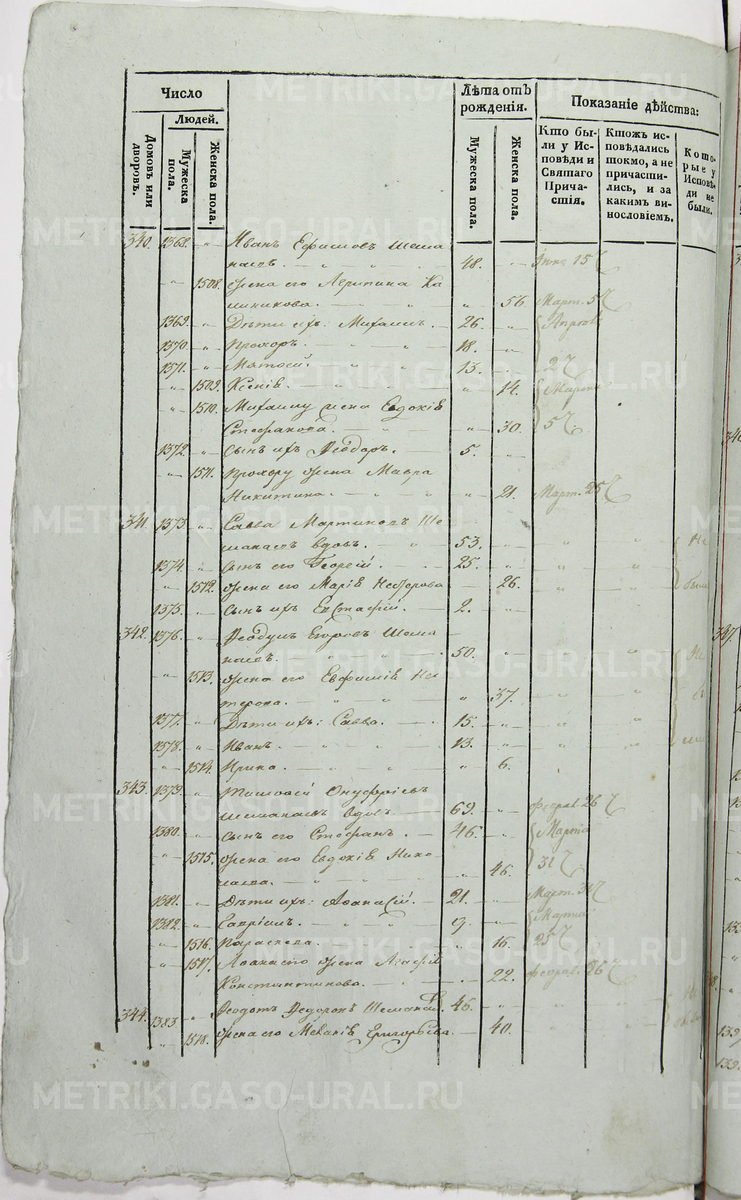 Число
Лѣта отъ рожденія.
Показаніе дѣйства:
Людей.
Домовъ или дворовъ.
Мужеска пола.
Женска пола.
Мужеска пола.
Женска пола.
Кто были у Исповѣди и Святаго Причастія.
Ктожъ исповѣдались токмо, а не причастились, и за какимъ винословіемъ.
Которые у Исповѣди не были.
340. 1368. Иванъ Ефимовъ Шема
наевъ. 48. 15
1508. жена его
56. Март. 5
1369. Дѣти ихъ: Михаилъ. 26.
1370. Прохоръ. 18.
1371. Матѳей. 13. 2
1509. Ксенія. 14. Марта
1510. Михаилу жена Евдокія
Стефанова. 30. 5
1372. Сынъ ихъ Ѳеодоръ. 5.
1511. Прохору жена Мавра
Никитина. 21. Март. 25
341. 1373. Савва Мартиновъ Ше
манаевъ вдовъ. 53. Не
1374. Сынъ его Георгій. 25.
1512. жена его Марія Несторова 26. были
1375. Сынъ ихъ Евстафій. 2.
342. 1376. Егоровъ Шема
наевъ. 50. Не
1513. жена его Евфимія Не
стерова. 37.
1377. Дѣти ихъ: Савва. 15.
1378. Иванъ. 13.
1514. Ирина. 6.
343. 1379. Тимоѳей Онуфріевъ
Шеманаевъ вдовъ. 69. Феврал. 26
1380. Сынъ его Стефанъ. 46. Марта
1515. жена его Евдокія Нико
лаева. 46. 31
1381. Дѣти ихъ: Аѳанасій. 21. Март. 31
1382. Гавріилъ. 9. Марта
1516. Параскева. 16. 25
1517. Аѳанасію жена Агафія
Константинова. 22. Феврал. 26
344. 1383. Ѳеодотъ Ѳедоровъ 46.
1518. жена его Меланія Григорьева. 40.
METRIKI.GASO-URAL.RU